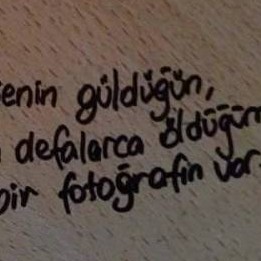 enin güldüğün,
defalarca öldüğüm
bir fotoğrafın var.